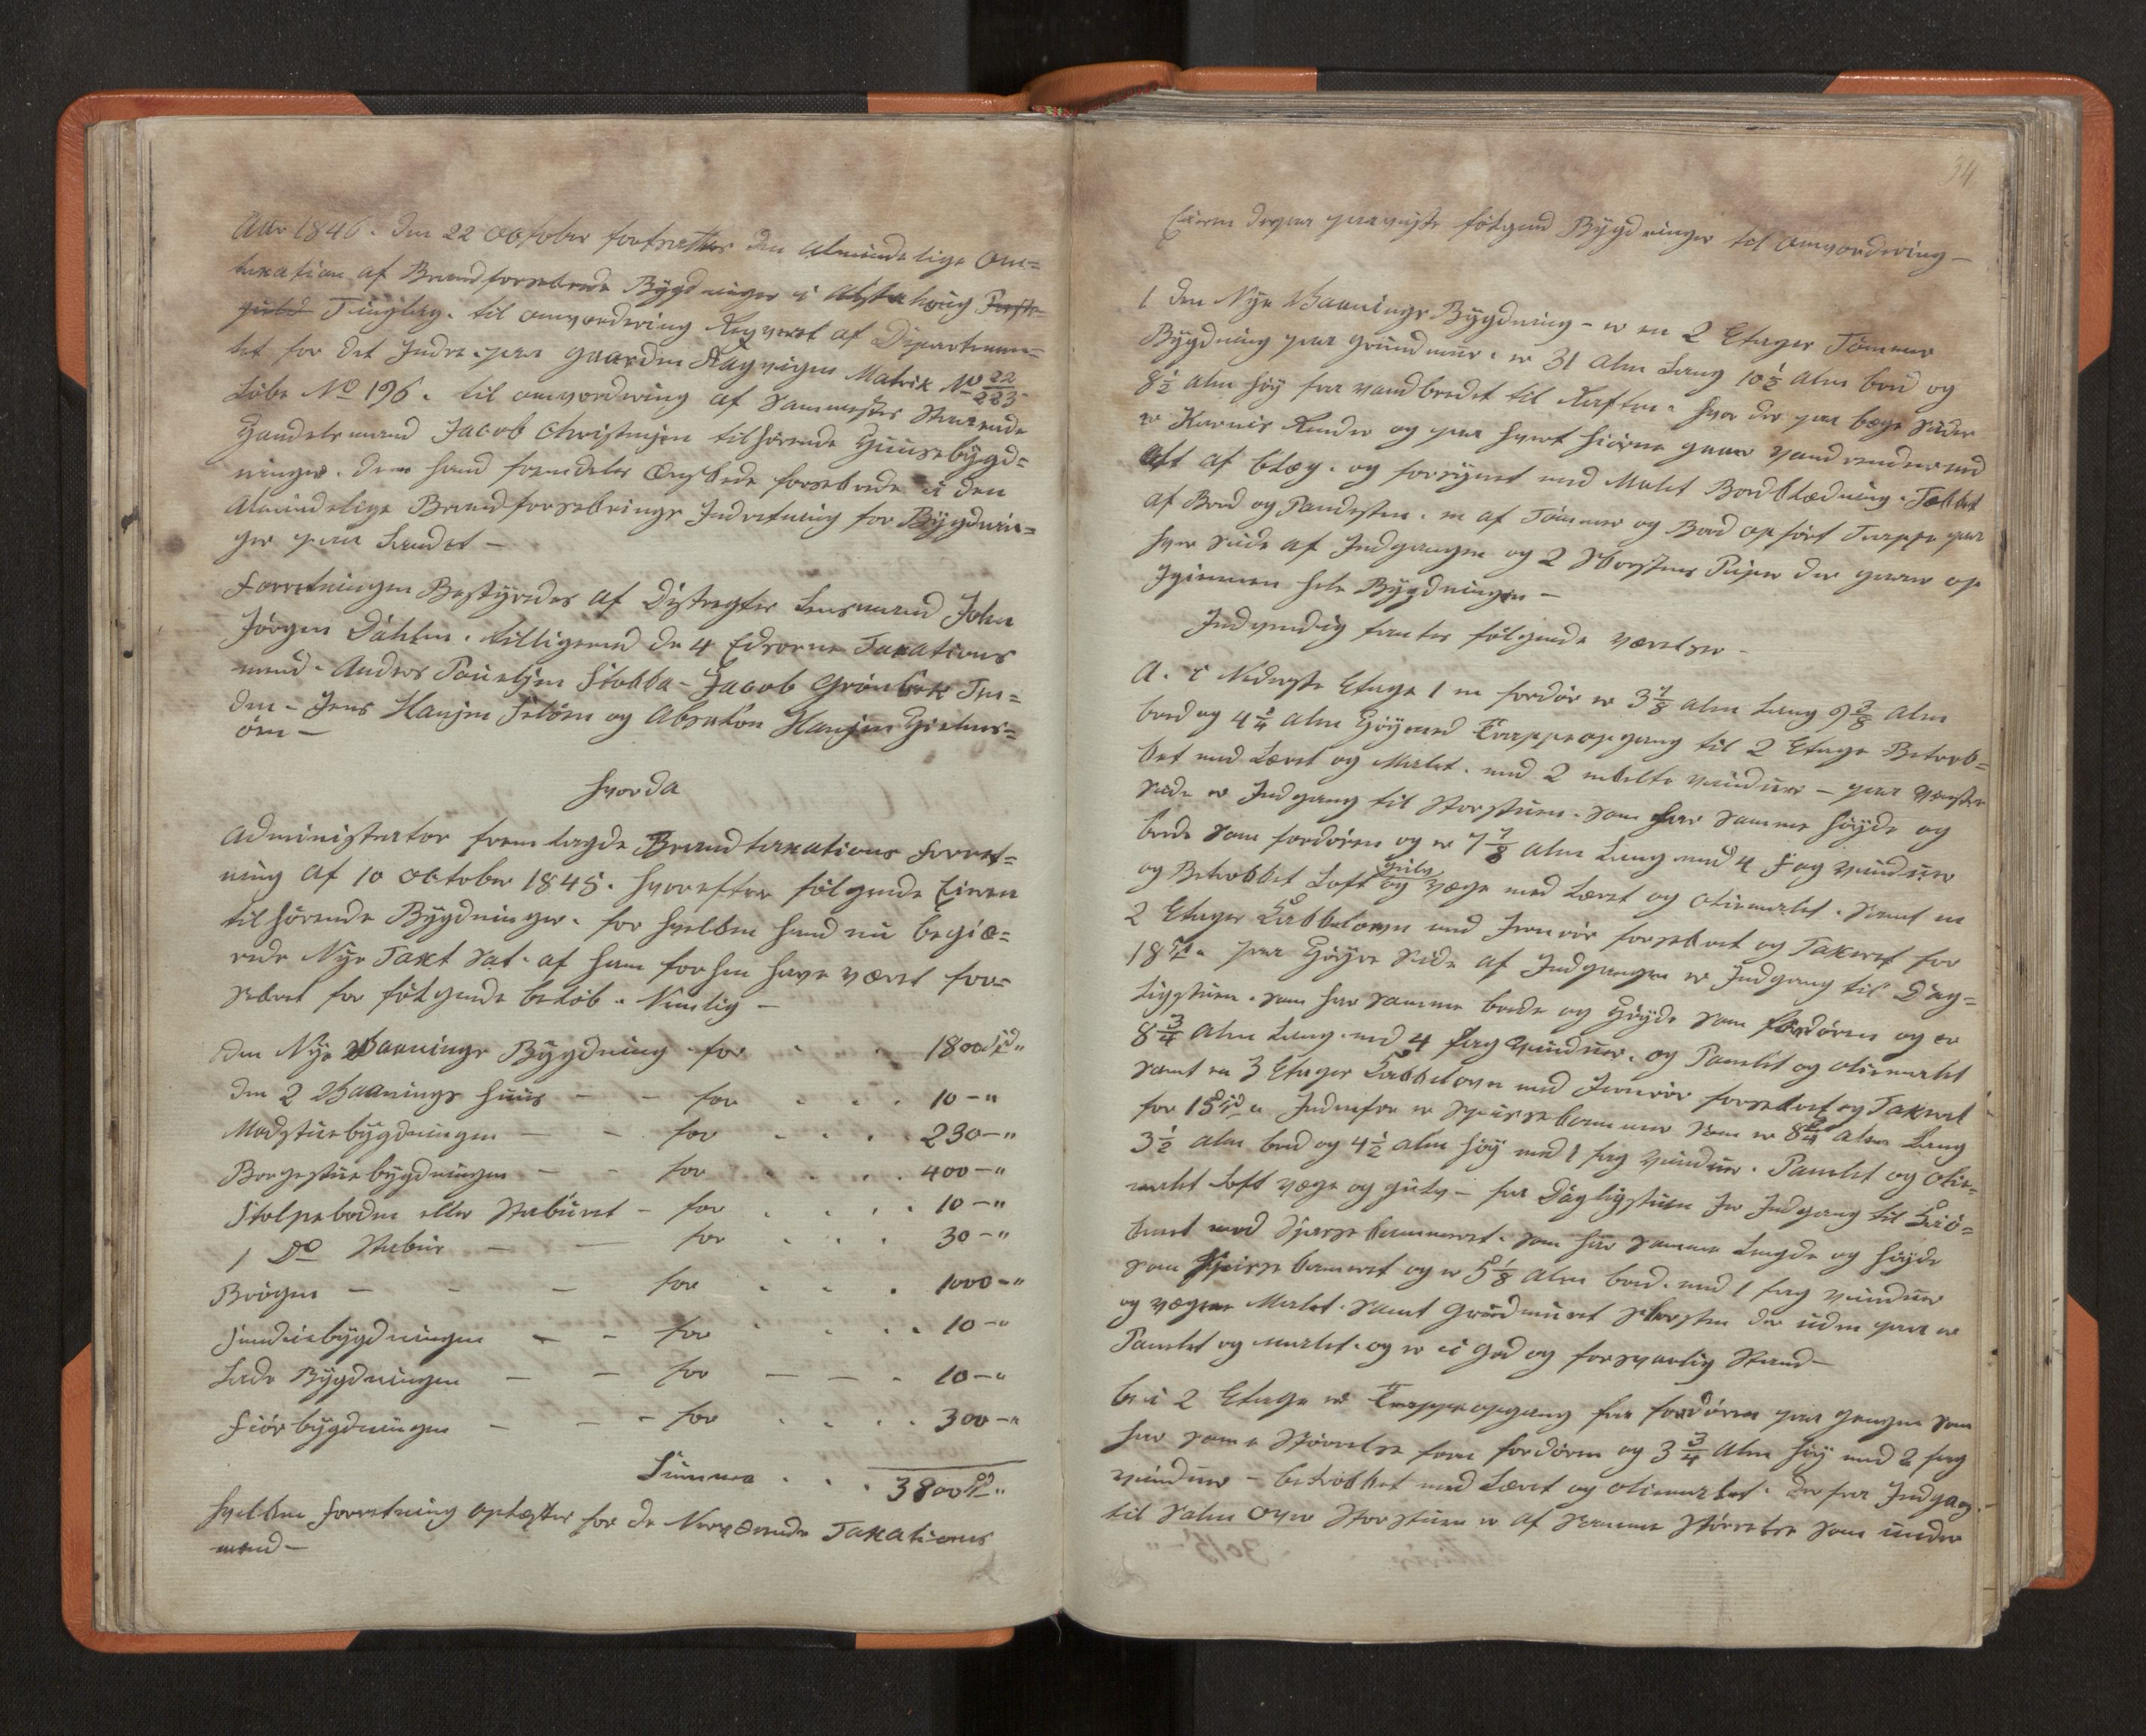 Aar 1846. den 22 October fortsattes den almindelige Om=
taxation af Brandforsikrede Bygninger i Alstahoug Præste=
gield Tinglag. til omvordering Reqveret af Departemen=
tet for det Indre. paa gaarden Hagvigen Matrik No 22/223
Løbe No 196. til omvordering af Sammesteds Værende
Handelsmand Jacob Christensen tilhørende Huusebygd=
ninger. dem hand fremdeles Ønskede forsikrede i den
Almindelige Brandforsikrings Indretning for Bygdnin=
ger paa Landet –
Forretningen Bestyredes af Distrigtes Lensmand John
Jörgen Dahlen. tilligemed de 4 Edsorne Taxations
mænd. Anders Poulsen Stokka – Jacob Grönbek Ten=
den – Jens Hansen Filöen og Absalon Hansen Hielms=
öen –
Hvorda
Administrator fremlagde Brandtaxations Forret=
ning af 10 October 1845. hvorefter følgende Eieren
tilhørende Bygdninger. for hvilken hand nu begiæ=
rede Nye Taxt Sat. af ham forhen have været for=
sikret for følgende beløb. Nemlig –
den Nye Vaanings Bygdning for . . 1800 Sp „
den 2 Vaanings Huus – – for . . . 10 – „
Madstuebygdningen – – for . . . 230 – „
Borgestuebygdningen – – for . . . 400 – „
Stolpeboden eller Staburet – for . . . 10 – „
1 Do Stabur – – for . . . 30 – „
Brögen – – – for . . . 1000 – „
Smediebygdningen – – for . . . 10 – „
Lade Bygdningen – – for – – . 10 – „
Fiörbygdningen – – – for . . . 300 – „
Summa . . . 3800 Sp „
hvilken Forretning oplæstes for de Nærværende Taxations
mænd –
34
Eieren derpaa paaviste følgende Bygdninger til Omvordering –
1 den Nye Vaanings Bygdning – er en 2 Etages Tömmer
Bygdning paa grundmuur. er 31 Alen Lang 10 1/2 Alen bred og
8 1/2 Alen høy fra vandbredet til Raften. hvor der paa begge Sider
er Karnis Render og paa hvert Hiörne gaar Vandrender ned
alt af blæg. og forsynet med Malet Bordklædning. Tækket
af Bord og Pandesten. en af Tömmer og Bord opført Trappe paa
hver Side af Indgangen og 2 Skorstens Piper der gaaer op
Igiennem hele Bygdningen –
Indvendig fantes følgende værelser –
A. i Nederste Etage 1 en fordør er 3 7/8 Alen Lang 9 3/8 Alen
bred og 4 1/4 Alen Høy med Trappeopgang til 2 Etage Betræk=
ket med Læret og Malet. med 2 enkelte Vinduer – paa Venstre
Side er Indgang til Storstuen. som har samme høyde og
brede som fordøren og er 7 7/8 Alen Lang med 4 Fag Vinduer
og Betrækket Loft gulv og vægge med Læret og oliemalet. Samt en
2 Etages Kakkelovn med Jernrör forsikret og Taxeret for
18 Sp „ paa Høyre Side af Indgangen er Indgang til Dag=
ligstuen. som har samme brede og Høyde som fordøren og er
8 3/4 Alen Lang. med 4 fag Vinduer. og Panelet og oliemalet
samt en 3 Etages Kakkelovn med Jernrör forsikret og Taxeret
for 15 Sp „ Indenfor er Spiisekammer som er 8 3/4 Alen Lang
3 1/2 Alen bred og 4 1/2 Alen høy med 1 fag Vinduer. Panelet og olie=
malet loft vægge og gulv – fra Dagligstuen er Indgang til Kiø=
kenet mod Spiisekammeret. som har samme Længde og høyde
som Spiisekameret og er 5 1/8 Alen bred. med 1 fag Vinduer
og væggene Malet. Samt grundmuuret Skorsten der uden paa er
Panelet og malet. og er i god og forsvarlig Stand –
b. i 2 Etage er Trappeopgang fra fordøren paa gangen som
har same Størrelse som fordøren og 3 3/4 Alen høy med 2 fag
Vinduer – betrækket med Læret og oliemalet. der fra Indgang
til Salen over Storstuen er af Samme Størrelse som under